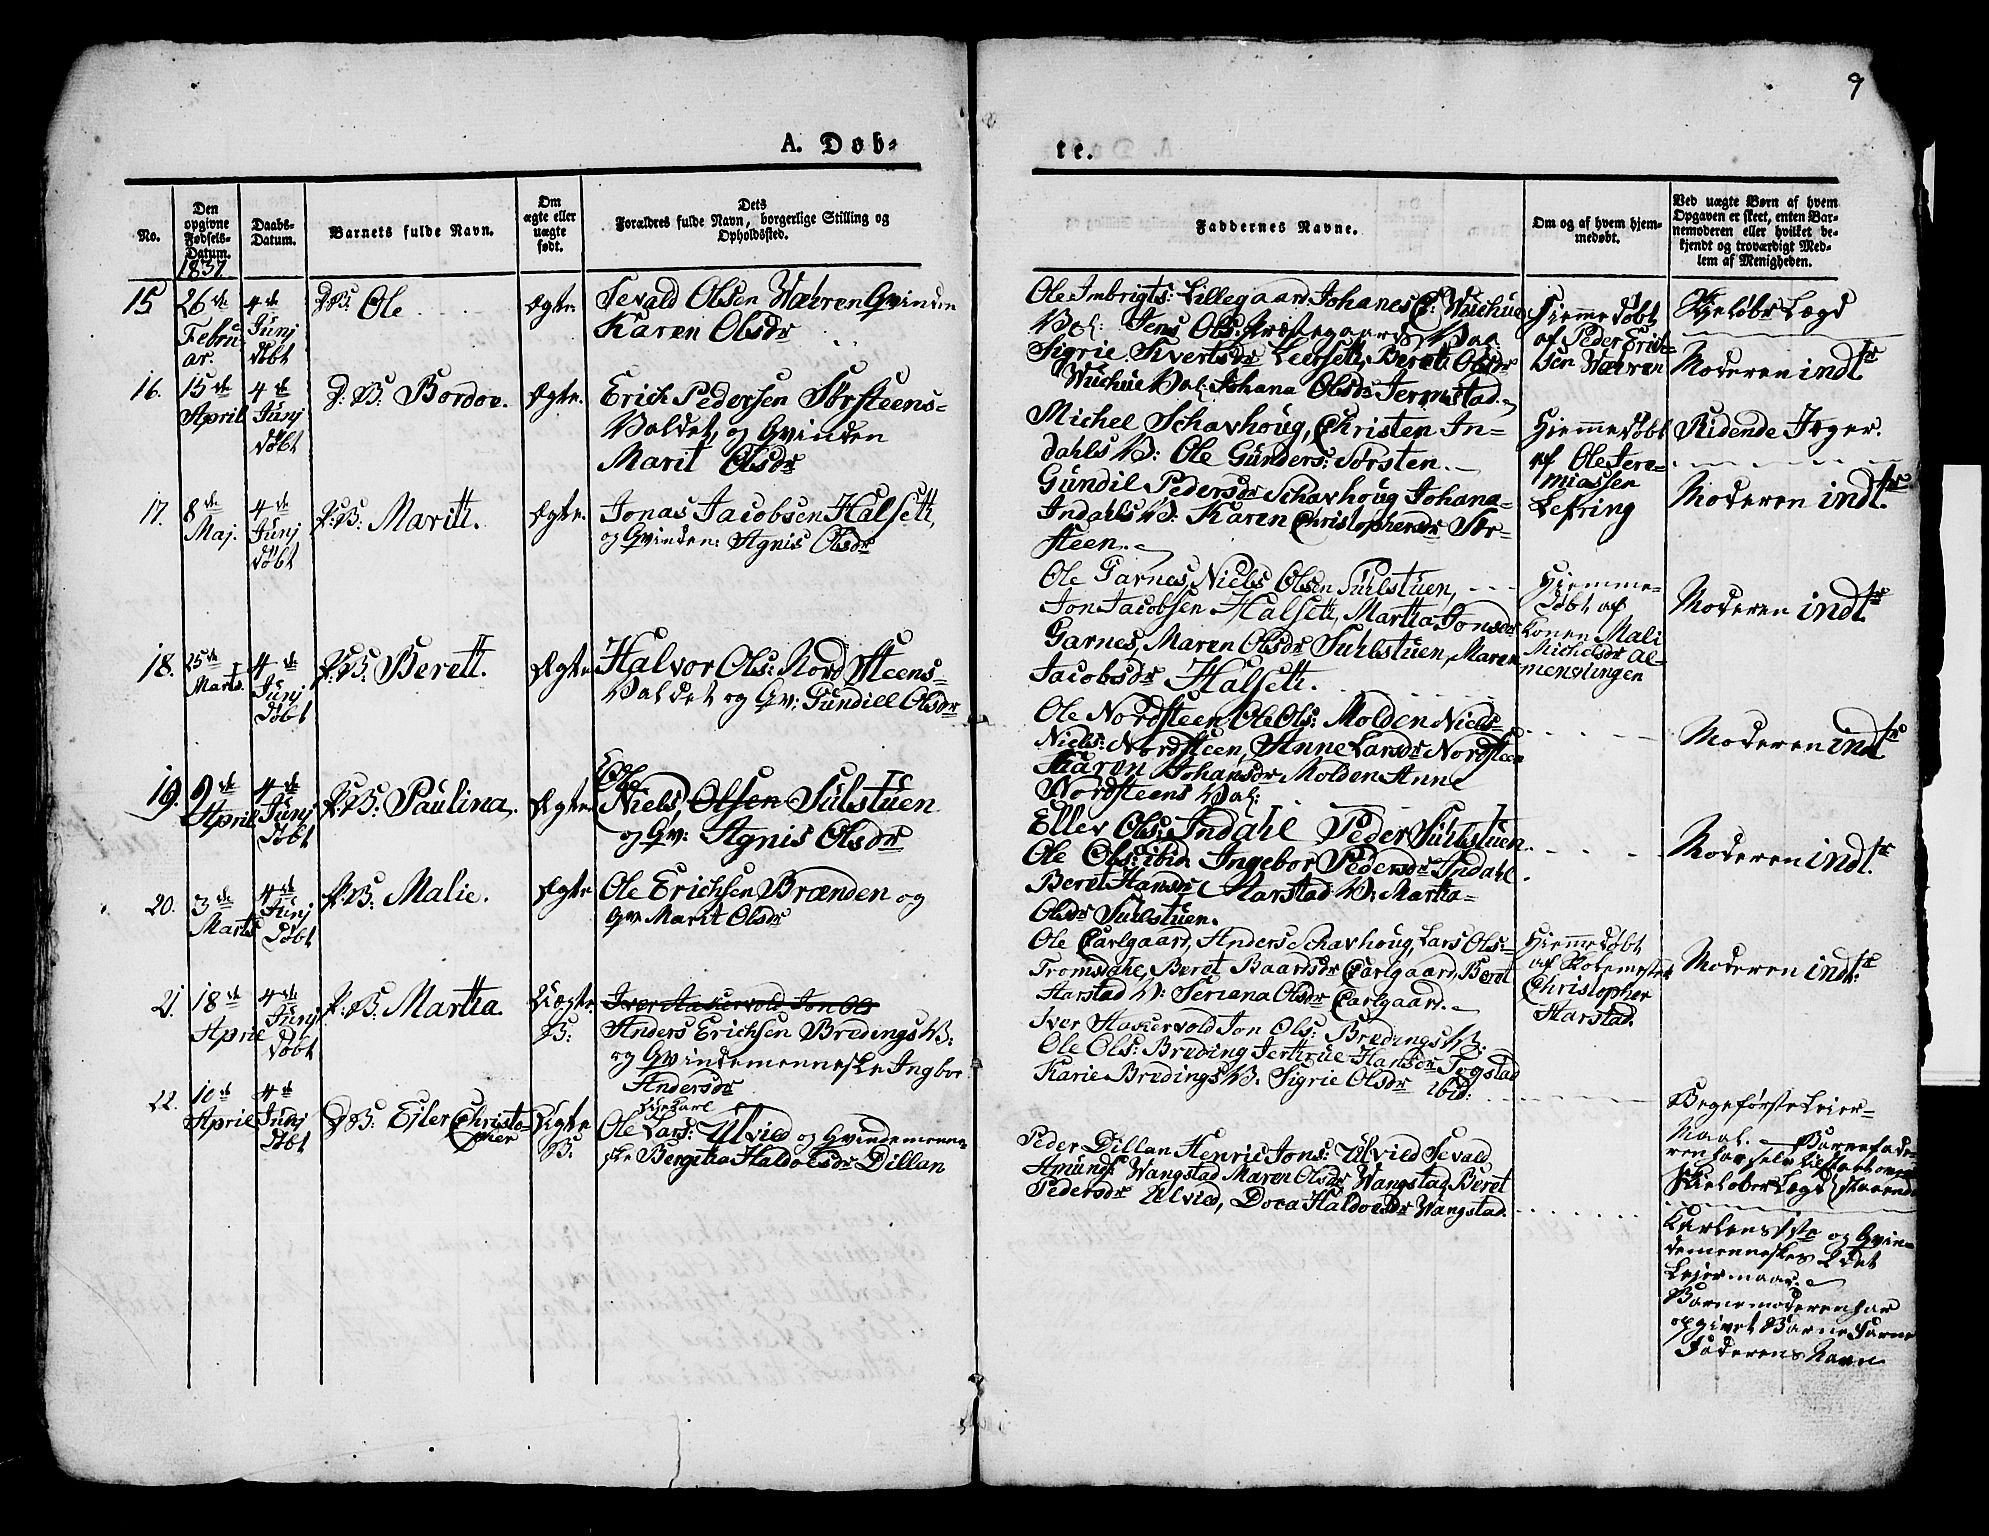 9
A. Døb-
te.
No.
Den
opgivne
Fødsels-
Datum.
1837
Daabs-
Datum.
Barnets fulde Navn.
Om
ægte eller
uægte
født.
Dets
Forældres fulde Navn, borgerlige Stilling og
Opholdssted.
Faddernes Navne.
Om og af hvem hjem-
medøbt.
Ved uægte Børn af hvem
Opgaven er skeet, enten Bar-
nemoderen eller hvilket be-
kjendt og troværdigt Med-
lem af Menigheden.
15
26de
Febru
ar.
4de
Junj
døbt
D:B: Ole
Ægte
Sevald Olsen Wæhren Qvinden
Karen Olsdr
Ole Imbrigts: Lillegaard Johanes
Jens Ols:
Sigrie Sivertsdr Beret Olsdr
Johana Olsdr Jermstad
Hiemmedøbt
af Peder Erick-
sen Wæhren
Lægd
Moderen indtr
16.
15de
April
4de
Junj
døbt
D:B: Bordoe.
Ægte.
Erick Pedersen Sørsteens-
Valdet, og Qvinden
Marit Olsdr
Michel Schavhoug, Christen In-
dahls V: Ole Gunders: Sørsteen.
Gundil Pedersdr Schavhoug Johana
Indahls V: Karen Christophersdr Sør-
steen.
Hiemmedøbt
af Ole Jere-
miassen
Lefring
Ridende Jæger.
Moderen indtr.
17.
8de
Maj.
4de
Junj
døbt
P:B: Marith.
Ægte.
Jonas Jacobsen Halseth,
og Qvinden: Agnis Olsdr
Ole Garnes, Niels Olsen Suhlstuen,
Jon Jacobsen Halseth, Martha Jonsdr
Garnes, Maren Olsdr Suhlstuen, Maren
Jacobsdr Halseth.
Hiemme-
døbt af
Konen Mali
Michelsdr Al-
menningen
Moderen indtr
18.
25de
Marts.
4de
Junj
døbt
P:B: Berett.
Ægte
Halvor Ols: Nord Steens-
Valdet og Qv: Gundill Olsdr
Ole Nordsteen Ole Ols: Molden Niels
Niels: Nordsteen, Anne Larsdr Nordsteen
Karen Johansdr Molden Anne
Nordsteens Val:
Moderen indtr
19.
9de
April
4de
Junj
døbt
P:B: Paulina.
Ægte
Niels, Olsen Sulstuen
og Qv: Agnis Olsdr
Ellev Ols: Indahl Peder Suhlstuen
Ole Ols: ibid. Ingebor Pedersdr Indahl
Beret Hansdr Harstad V: Martha
Olsdr Suhlstuen.
Moderen indtr.
20.
3de
Marts
4de
Junj
døbt
P:B: Malie.
Ægte
Ole Erichsen Brænden og
Qv: Marit Olsdr
Ole Carlgaard, Anders Schavhoug, Lars Ols:
Tromsdahl, Beret Baardsdr Carlgaard, Beret
Harstad V: Seriana Olsdr Carlgaard.
Hiemmedøbt
af Skolemester
Christopher
Harstad.
Moderen indtr
21.
18de
April
4de
Junj
døbt
P:B: Martha.
Uægte.
B:
Iver Haskervold Jon Ols
Anders Erichsen Bredings V:
og Qvindemenneske Ingbor
Andersdr
Iver Haskervold Jon Ols: Bredings V:
Ole Ols: Breding Jertrue Hansdr Togstad
Karie Bredings V. Sigrie Olsdr ibid:
Bege første Leier-
maal. Barnefade-
ren har selv
Lægd
22.
10de
April
4de
Junj
døbt
D:B: Ejler Christo-
pher
Uægte
B:
Ungkarl
Ole Lars: Ulvild og Qvindemenne-
ske Bergitha Haldorsdr Dillan
Peder Dillan Henric Jons: Ulvild Sevald
Amunds: Wangstad Maren Olsdr Wangstad, Beret
Pedersdr Ulvild, Dorca Haldorsdr Wangstad.
Karlens 1ste og Qvin-
demenneskes 2det
Leiermaal.
Barnemoderen har
opgivet Barne
Faderens Navn